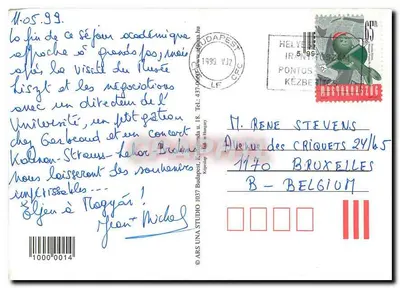 11.05.99.
La fin de ce séjour académique
approche à grands pas, mais
après la visite du Musée
Liszt et les négociations
avec un directeur de l'
Université, un petit gâteau
chez Gerbeaud et un concert
Kalman-Strauss-Lehar-Brahms
nous laisseront des souvenirs
impérissables...
Eljen a Magyar!
Jean-Michel
10000014
© ARS UNA STUDIO 1037 Budapest,
BUDAPEST
1999. V. 12
HELYES
IRÁNYÍTÓSZÁM
PONTOS
KÉZBESÍTÉS
MAGYARORSZÁG
M. RENE STEVENS
AVENUE DES CRIQUETS 24/65
1170 BRUXELLES
B - BELGIUM